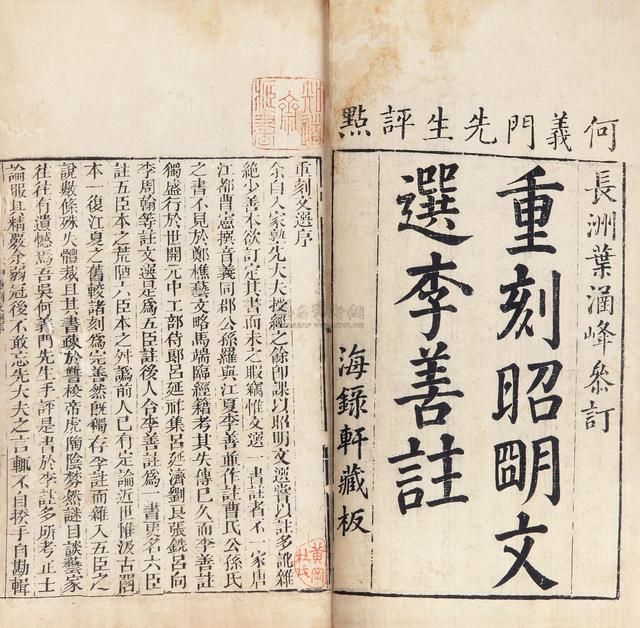 何義門先生評點
長洲葉涵峰參訂
重刻昭明文
選李善註
海錄軒藏板
重刻文選序
余自入家塾先大夫授經之餘卽課以昭明文選嘗以註多訛雜
絕少善本欲訂定其書而未之暇竊惟文選一書註者不一家唐
江都曹憲撰音義同郡公孫羅與江夏李善並作註曹氏公孫氏
之書不見於鄭樵藝文略馬端臨經籍考其失傳已久而李善註
獨盛行於世開元中工部侍郎呂延祚集呂延濟劉良張銑呂向
李周翰等註文選是爲五臣註後人合李善註爲一書更名六臣
註五臣本之荒陋六臣本之舛譌前人已有定論近世惟汲古閣
本一復江夏之舊較諸刻爲完善然旣獨存李註而雜入五臣之
說數條殊失體裁且其書疎於讐校帝虎陶陰棼然謎目談藝家
往往有遺憾焉吾吳何義門先生手評是書於李註多所考正士
論服其精嚴余弱冠後不敢忘先大夫之言輒不自揆手自勘輯